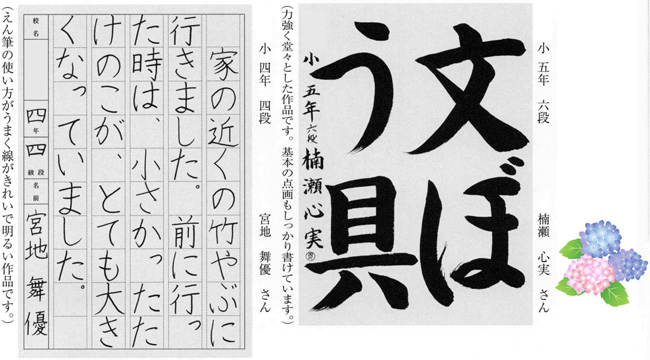 小 五年 六段
楠瀬 心実 さん
文ぼ
う具
小五年六段楠瀬心実
(力強く堂々とした作品です。基本の点画もしっかり書けています。)
小 四年 四段
宮地 舞優 さん
家の近くの竹やぶに
行きました。前に行っ
た時は、小さかったた
けのこが、とても大き
くなっていました。
校名
四年
四級段
名前
宮地 舞優
(えん筆の使い方がうまく線がきれいで明るい作品です。)